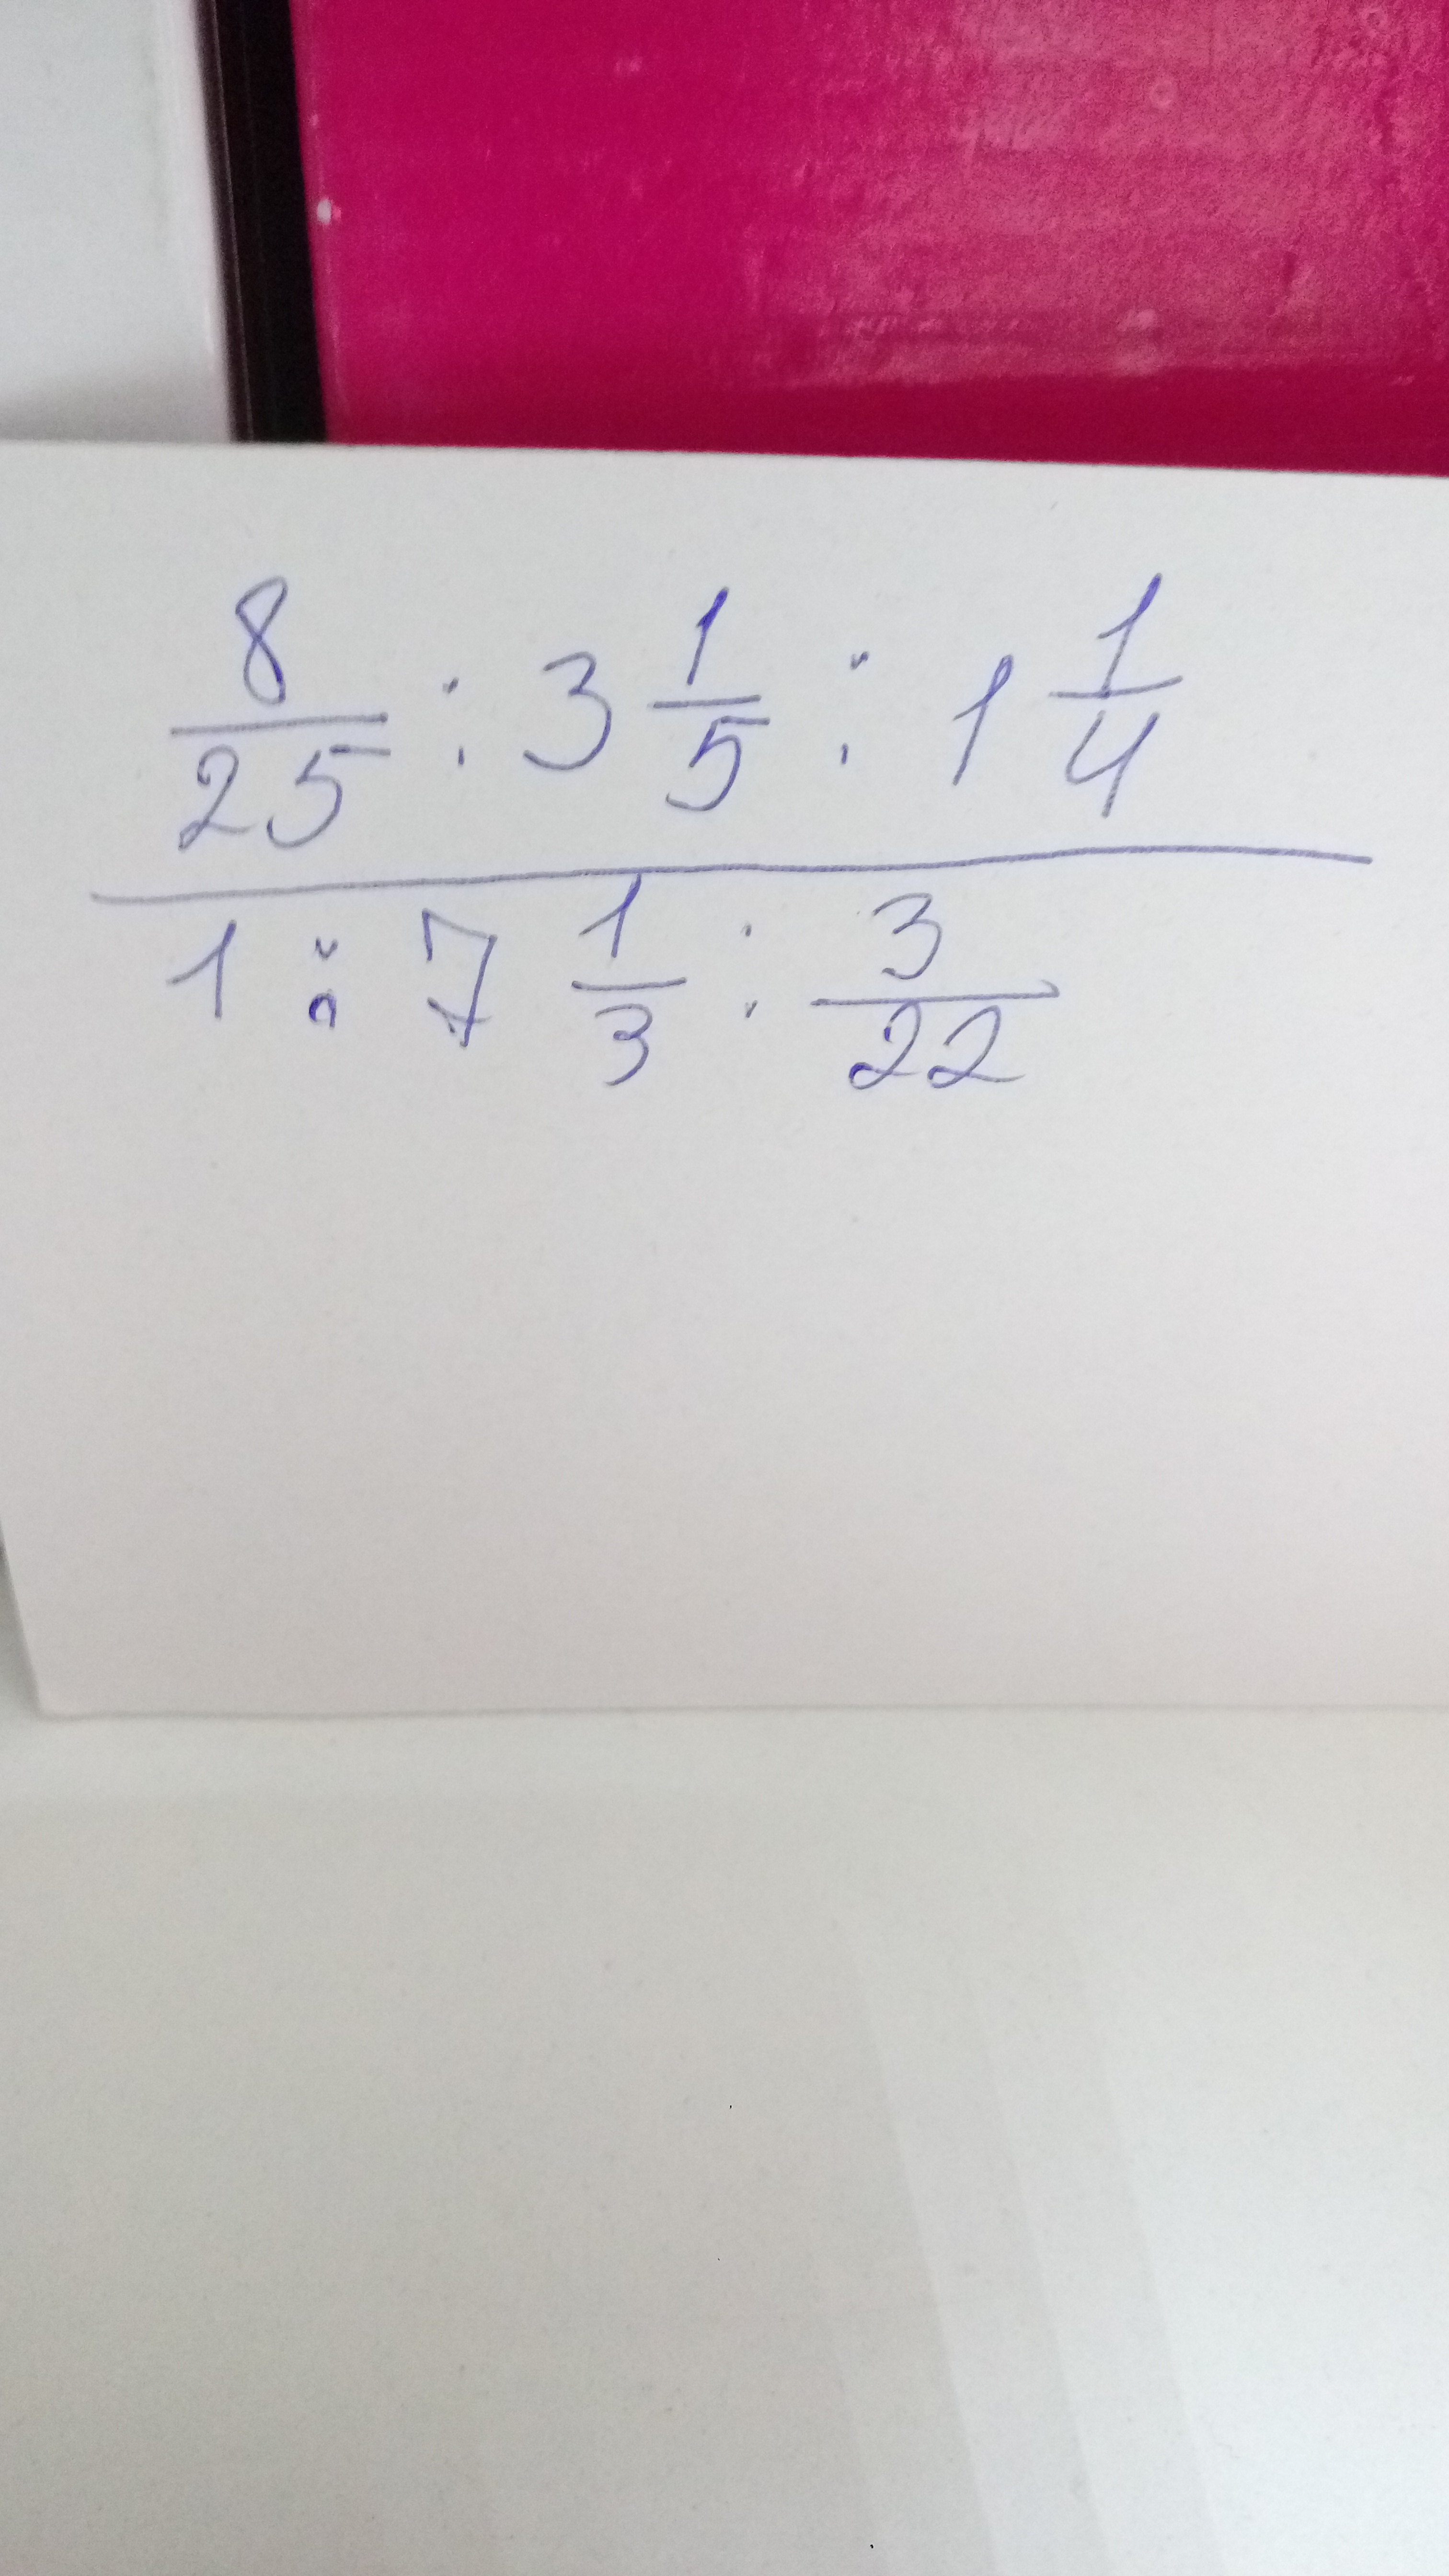 8/25 : 3 1/5 : 1 1/4
1 : 7 1/3 : 3/22